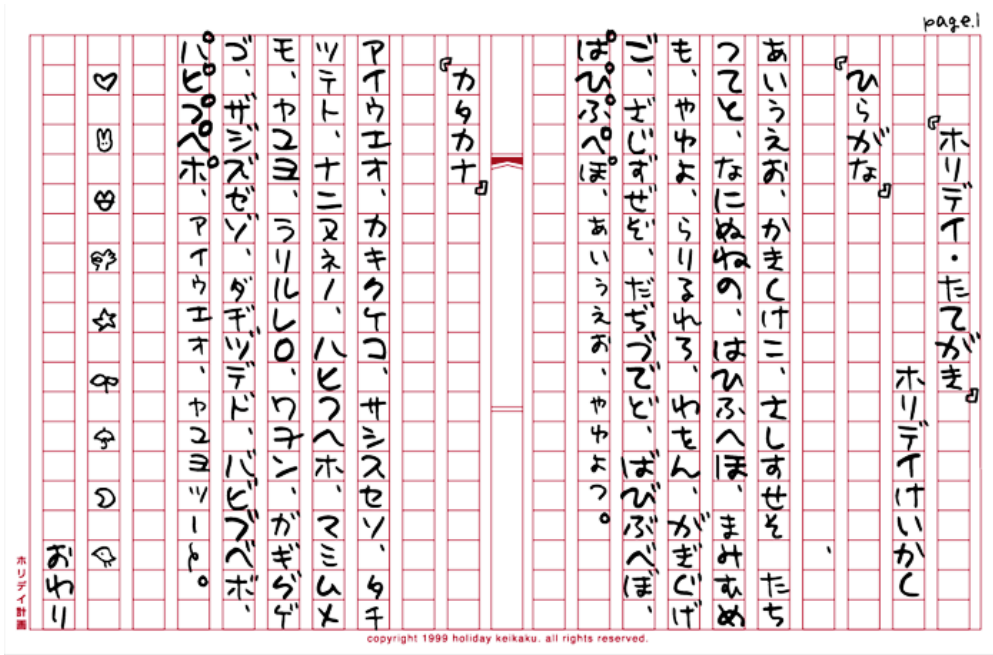 page.1
『ホリデイ・たてがき』
ホリデイけいかく
『ひらがな』
あいうえお、かきくけこ、さしすせそ、たち
つてと、なにぬねの、はひふへほ、まみむめ
も、やゆよ、らりるれろ、わをん、がぎぐげ
ご、ざじずぜぞ、だぢづでど、ばびぶべぼ、
ぱぴぷぺぽ、ぁぃぅぇぉ、ゃゅょっ。
『カタカナ』
アイウエオ、カキクケコ、サシスセソ、タチ
ツテト、ナニヌネノ、ハヒフヘホ、マミムメ
モ、ヤユヨ、ラリルレロ、ワヲン、ガギグゲ
ゴ、ザジズゼゾ、ダヂヅデド、バビブベボ、
パピプペポ、ァィゥェォ、ャュョッー〜。
おわり
ホリデイ計画
copyright 1999 holiday keikaku. all rights reserved.